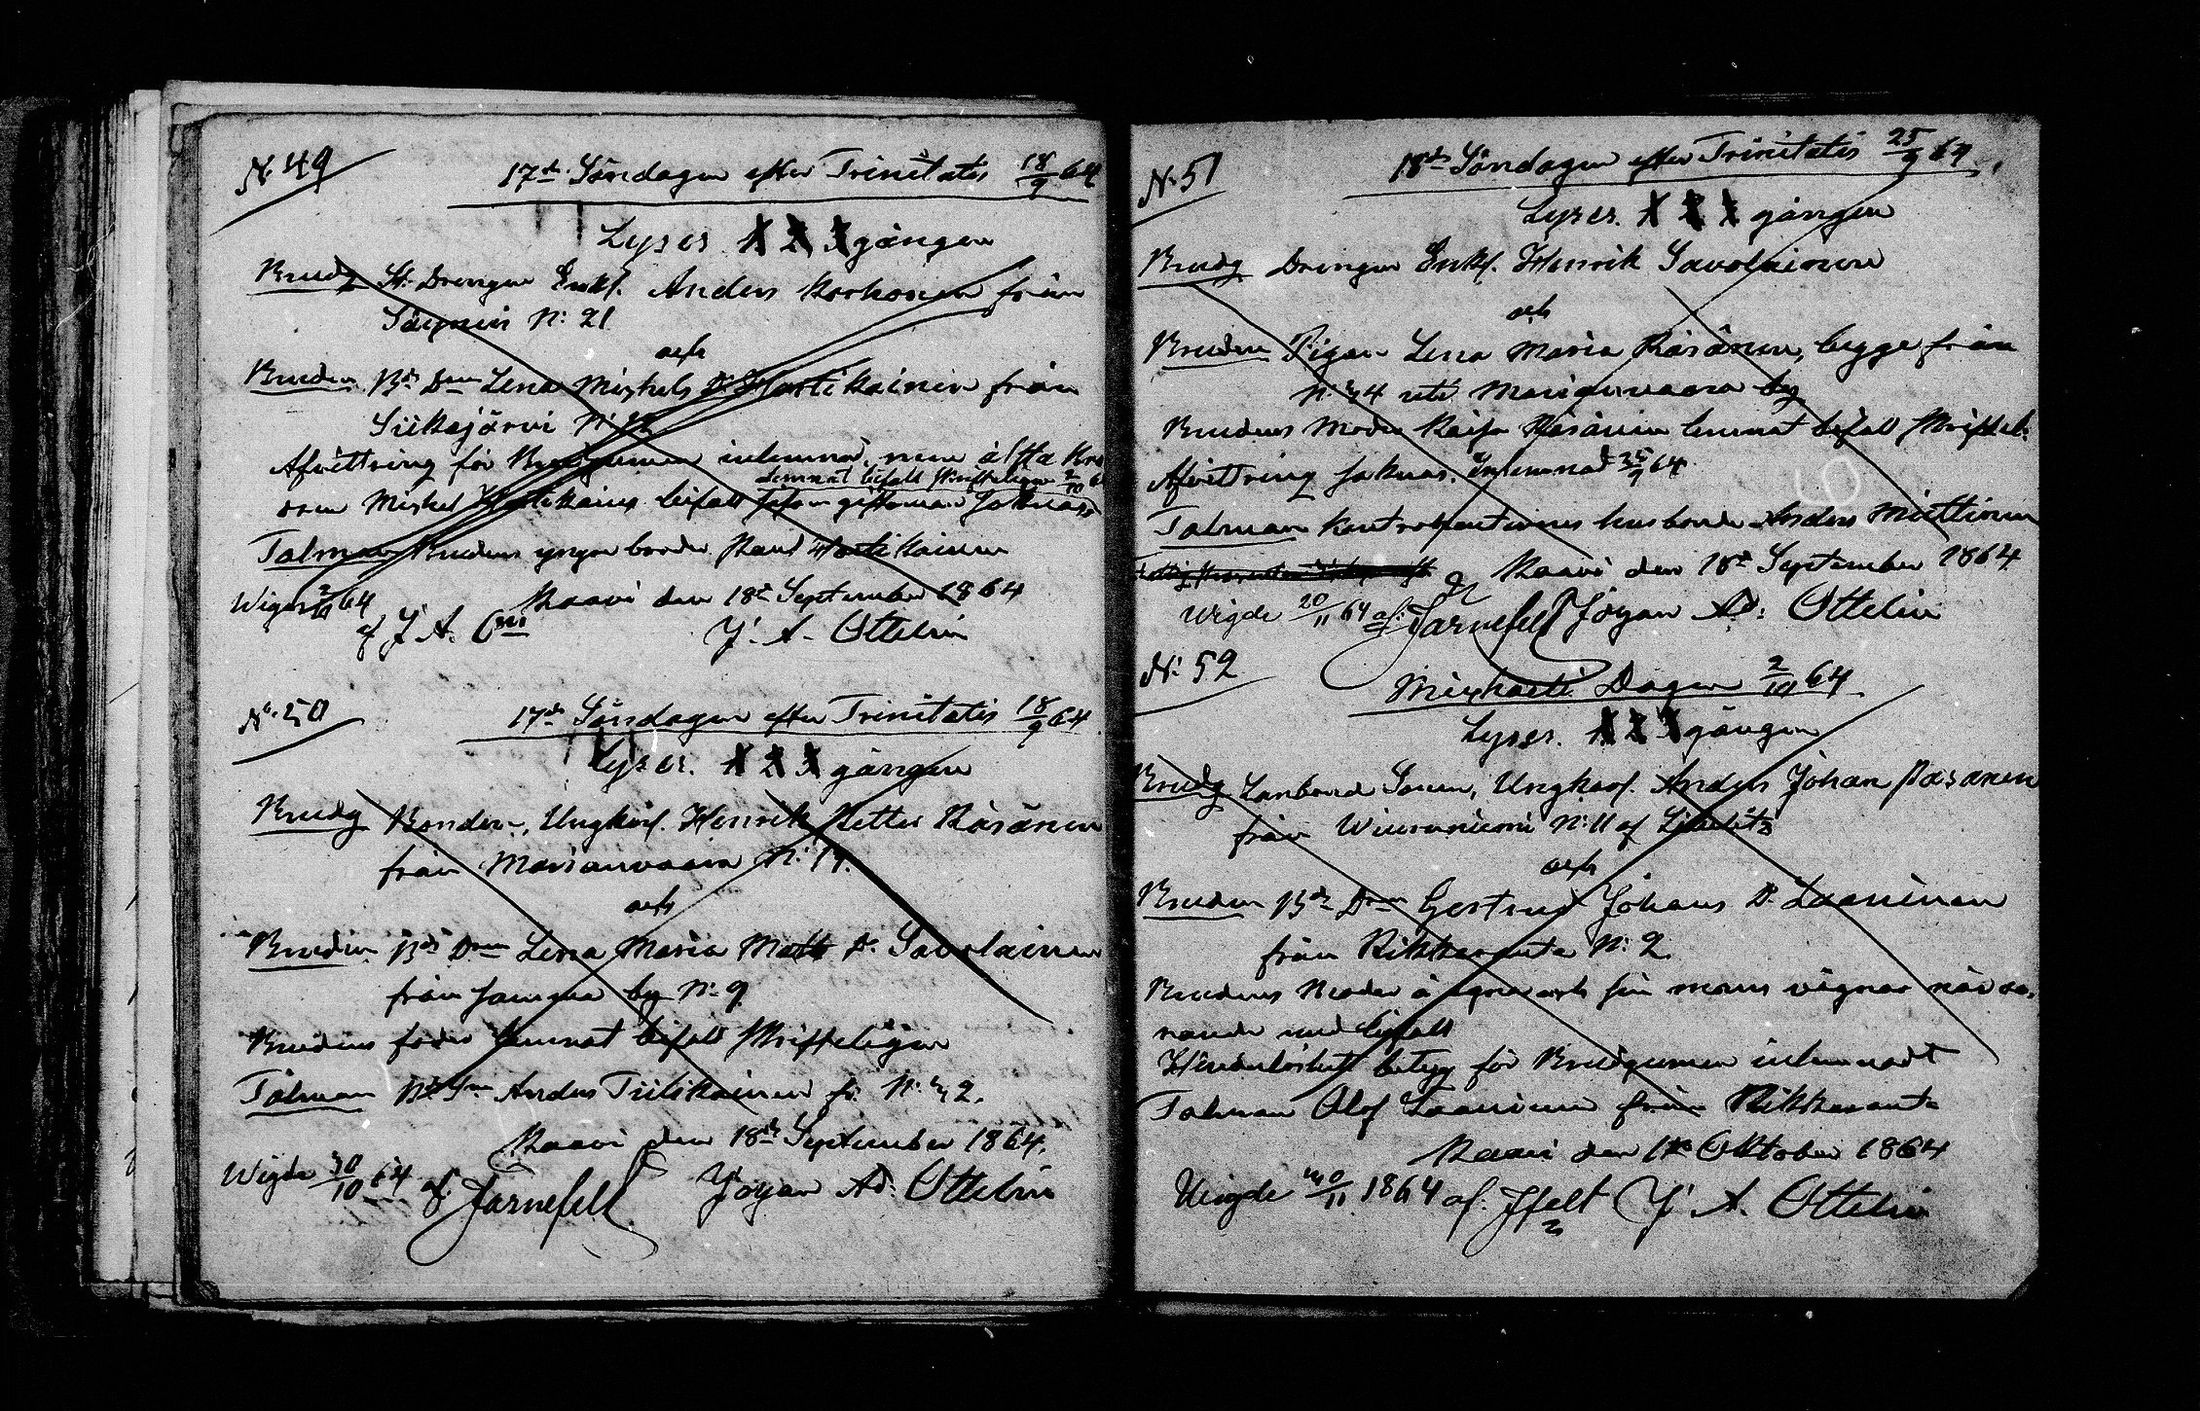 N: 49
17de Söndagen efter Trinitatis 18/9 64
Lyses 1 2 3 gången
Brudg St: Drengen Enkl. Anders Korhonen från
Säyneis N: 21
och
Bruden Bde Dren Lena Mickels Dr Hartikainen från
Siikajärvi N:
Afvittring för Brudgummen inlemnad,
lemnat bifall skrifteligen 2/10 6
Mickel Hartikaines bifall såsom giftoman saknas
Talman Brudens yngre broder Paul Hartikainen
Kaavi den 18de September 1864
Wigde 2/10 64
af J. A. Oin
J. A. Ottelin
N: 50
17de Söndagen efter Trinitatis 18/9 64
Lyses. 1 2 3 gången
Brudg Bonden, Ungkarl. Henrik Petter Räsänen
från Marianvaara N: 14.
och
Bruden Bde Dren Lena Maria Matts Dr. Savolainen
från by N: 9
Brudens fader lemnat bifall skrifteligen
Talman Bde Sn Anders Tiilikainen fr. N: 32.
Kaavi den 18de September 1864.
Wigde 30/10 64 af Jarnefelt Johan Ad: Ottelin
N: 51
18de Söndagen efter Trinitatis 25/9 64.
Lyses. 1 2 3 gången
Brudg Drengen Enkl. Henrik Savolainen
och
Bruden Pigan Lena Maria Räsänen, begge från
N: 34 uti Marianvaara by
Brudens Moder Kaisa Räsänen lemnat bifall skriftel:
Afvittring saknas. Inlemnad 25/9 64
Talman husbonde Anders Miettinen
Kaavi den 18de September 1864
Wigde 20/11 64 af: Jarnefelt Johan Ad: Ottelin
N: 52
Michaeli Dagen 2/10 64
Lyses. 1 2 3 gången
Brudg Lanbonde Sonen, Ungkarl. Anders Johan Räsänen
från Wiuruniemi N: 11 af Libelitz
och
Bruden Bde Dren Gertrud Johans Dr. Laaninen
från Rikkaranta N: 2.
Brudens Moder å egna och sin mans vägnar närva-
rande med bifall
Hinderlöshets betyg för Brudgummen inlemnadt
Talman Olof Laaninen från Rikkaranta
Kaavi den 1de Oktober 1864
Wigde 30/11 1864 af. Jfelt J. A. Ottelin